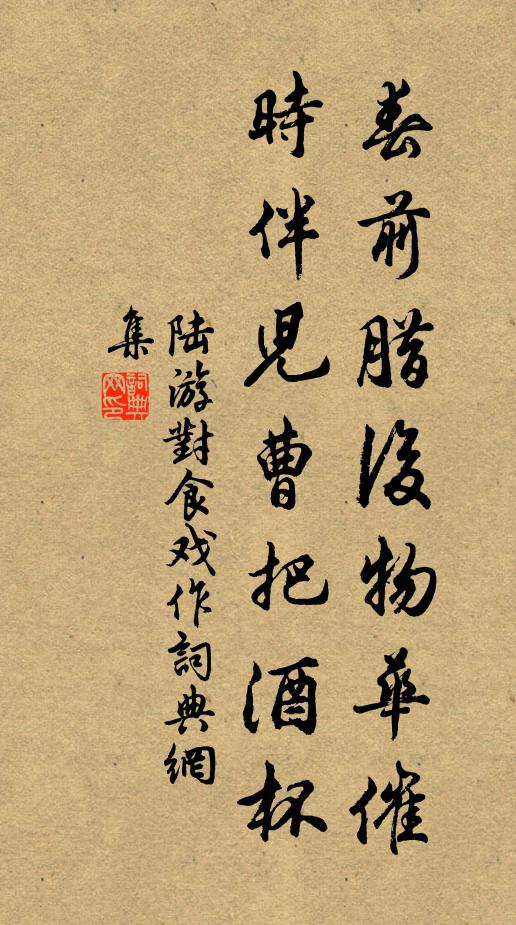 春前腊後物華催
時伴兒曹把酒杯
陆游對食戏作詞典網
集
詞典網印